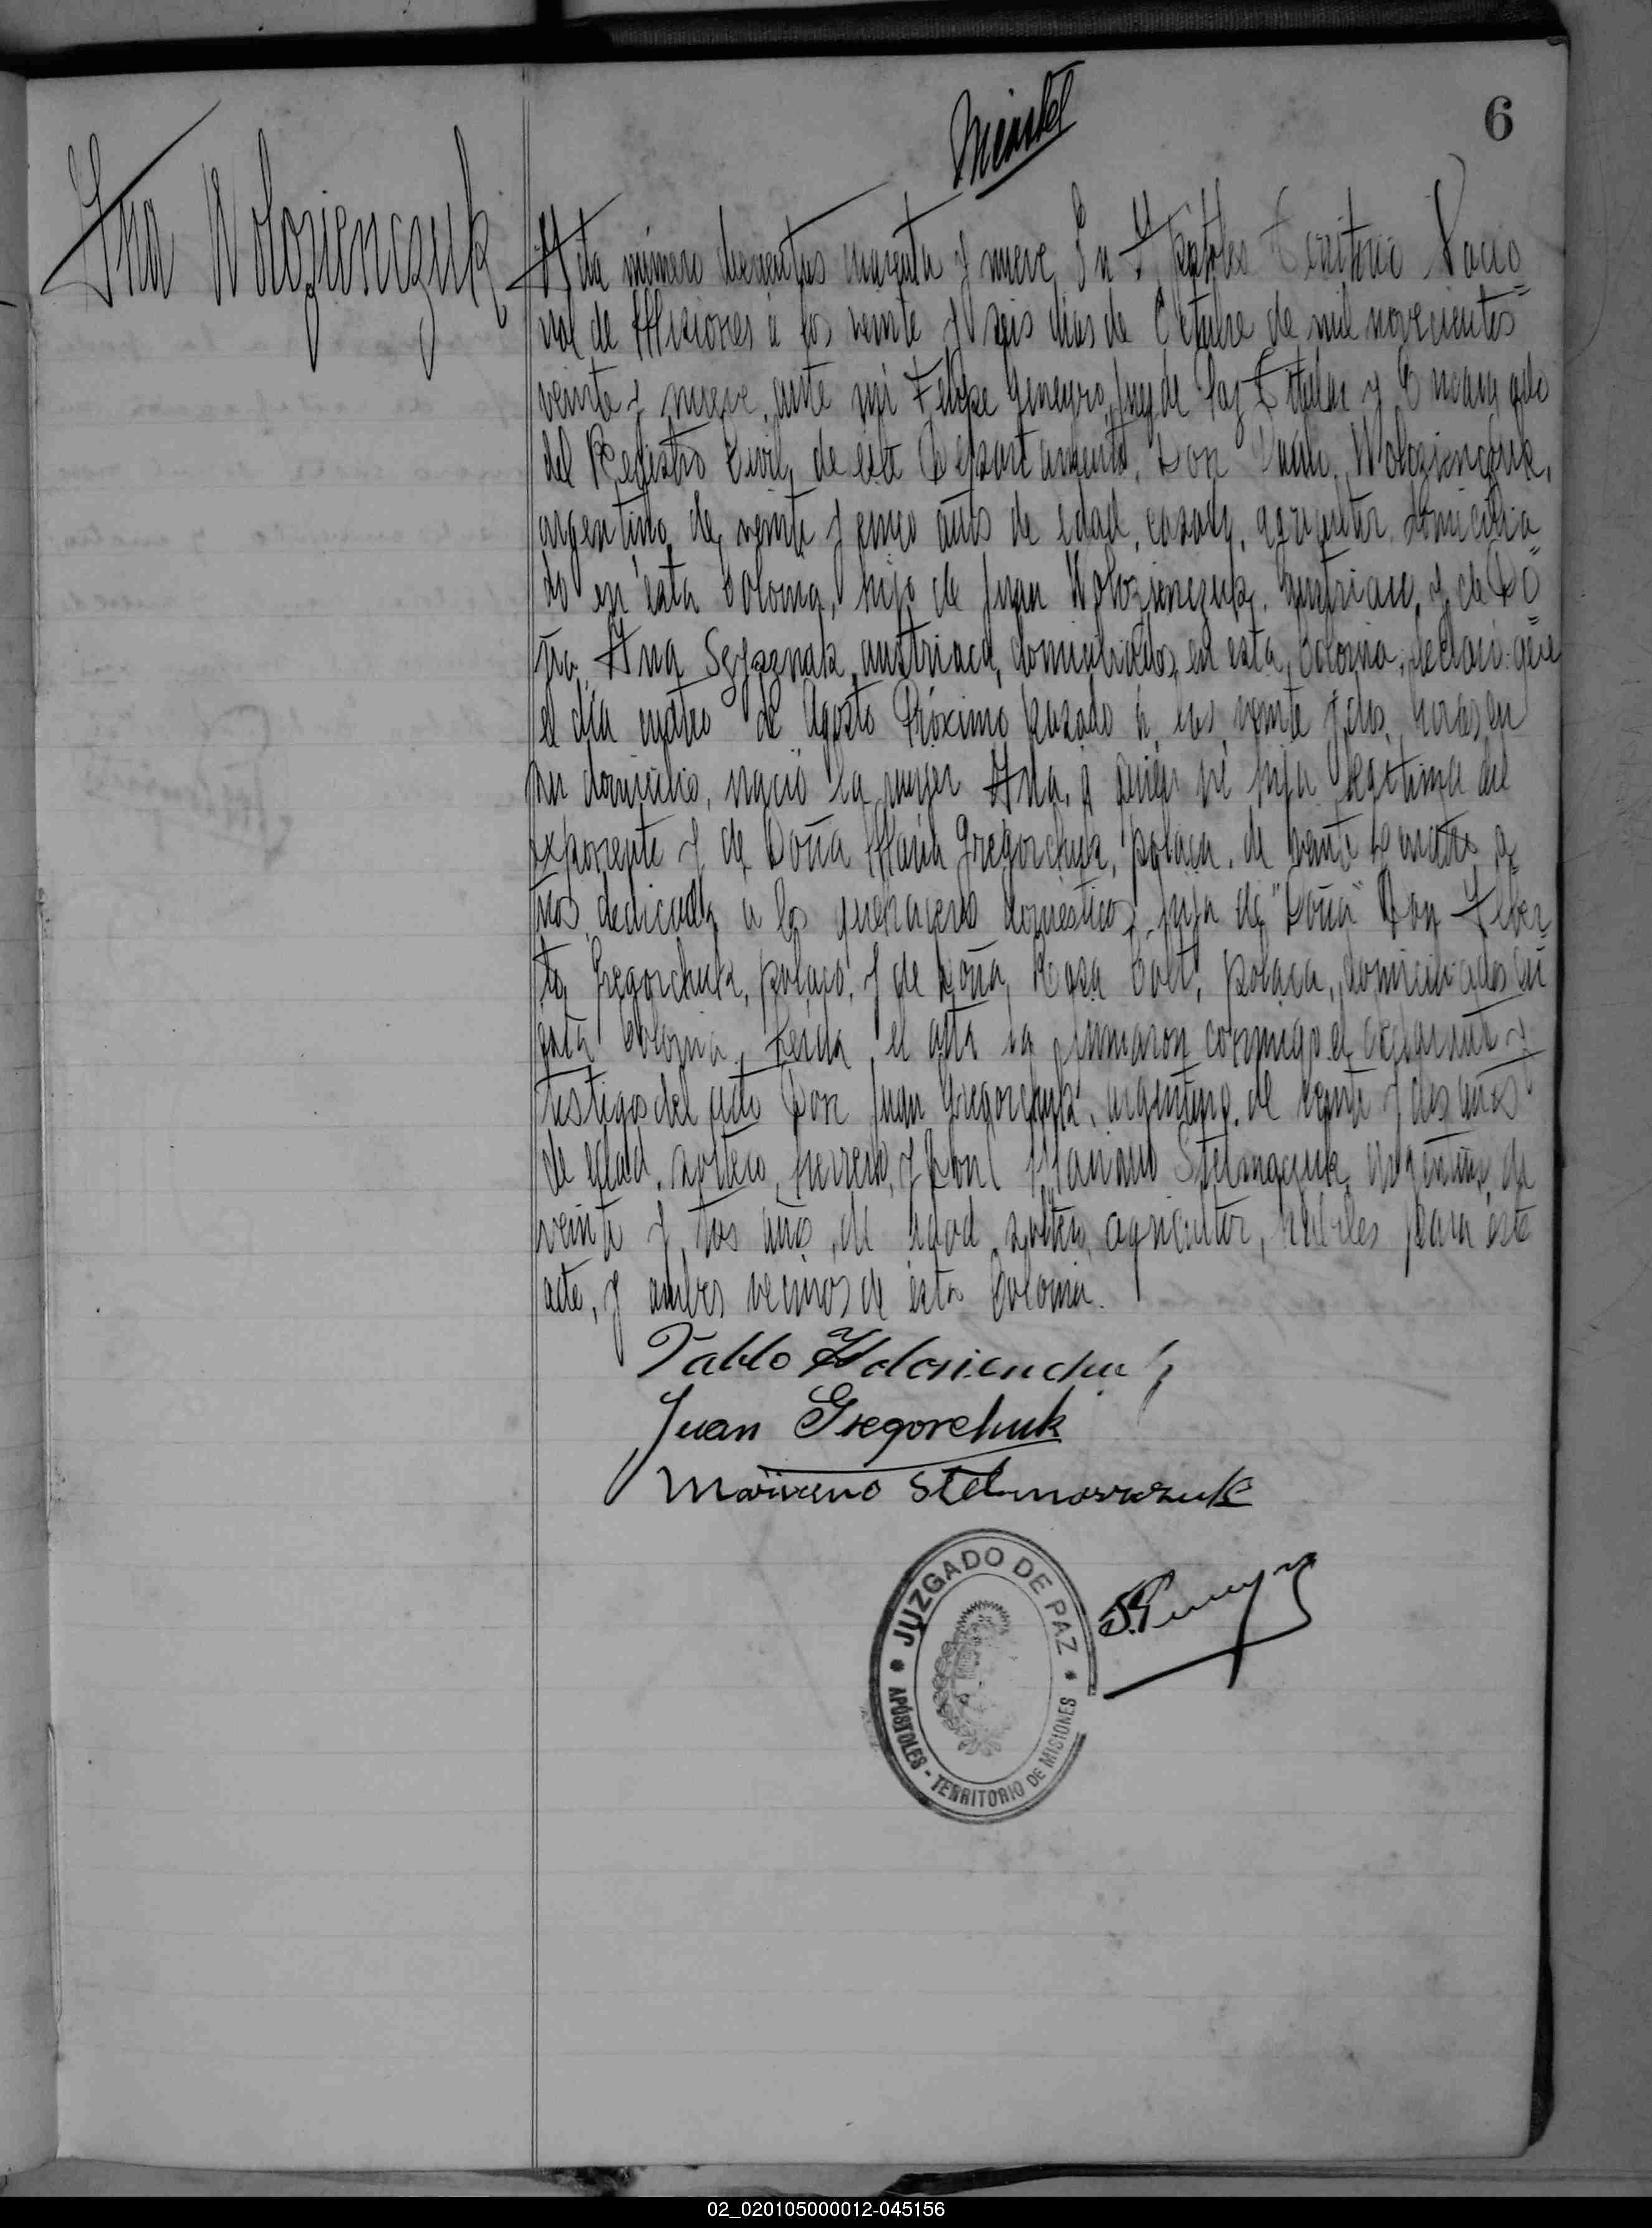 6
Ana Wolozienczuk
Acta número doscientos cuarenta y nueve, En Apóstoles Territorio Nacio=
nal de Misiones á los veinte y seis dias de Octubre de mil novecientos
veinte y nueve, ante mi Felipe Juez de Paz Titular y Encargado
del Registro Civil, de este Departamento, Don Pablo Wolozienczuk,
argentino, de veinte y cinco años de edad, casado, agricultor, domicilia=
do en esta Colonia, hijo de Juan Wolozienczuk, austriaco, y de Do=
ña Ana austriaca, domiciliados en esta Colonia, declaró: que
el día cuatro de Agosto Próximo pasado á las veinte y dos horas, en
su domicilio, nació la mujer Ana, q hija legítima del
exponente y de Doña María Gregorchuk, polaca, de veinte y cuatro a=
ños, dedicada á los quehaceres domésticos, hija de "Doña" Don
Gregorchuk, polaco, y de Doña Rosa polaca, domiciliados en
esta Colonia. Leída el acta la firmaron conmigo el declarante y
testigos del acto Don Juan Gregorchuk, argentino, de veinte y dos años
de edad, soltero, herrero, y Don Mariano Stelmaszczuk, argentino, de
veinte y dos años, de edad, soltero, agricultor, hábiles para éste
acto, y ambos vecinos de esta Colonia.
Pablo
Juan Gregorchuk
Mariano
JUZGADO DE PAZ
APÓSTOLES - TERRITORIO DE MISIONES
02_020105000012-045156